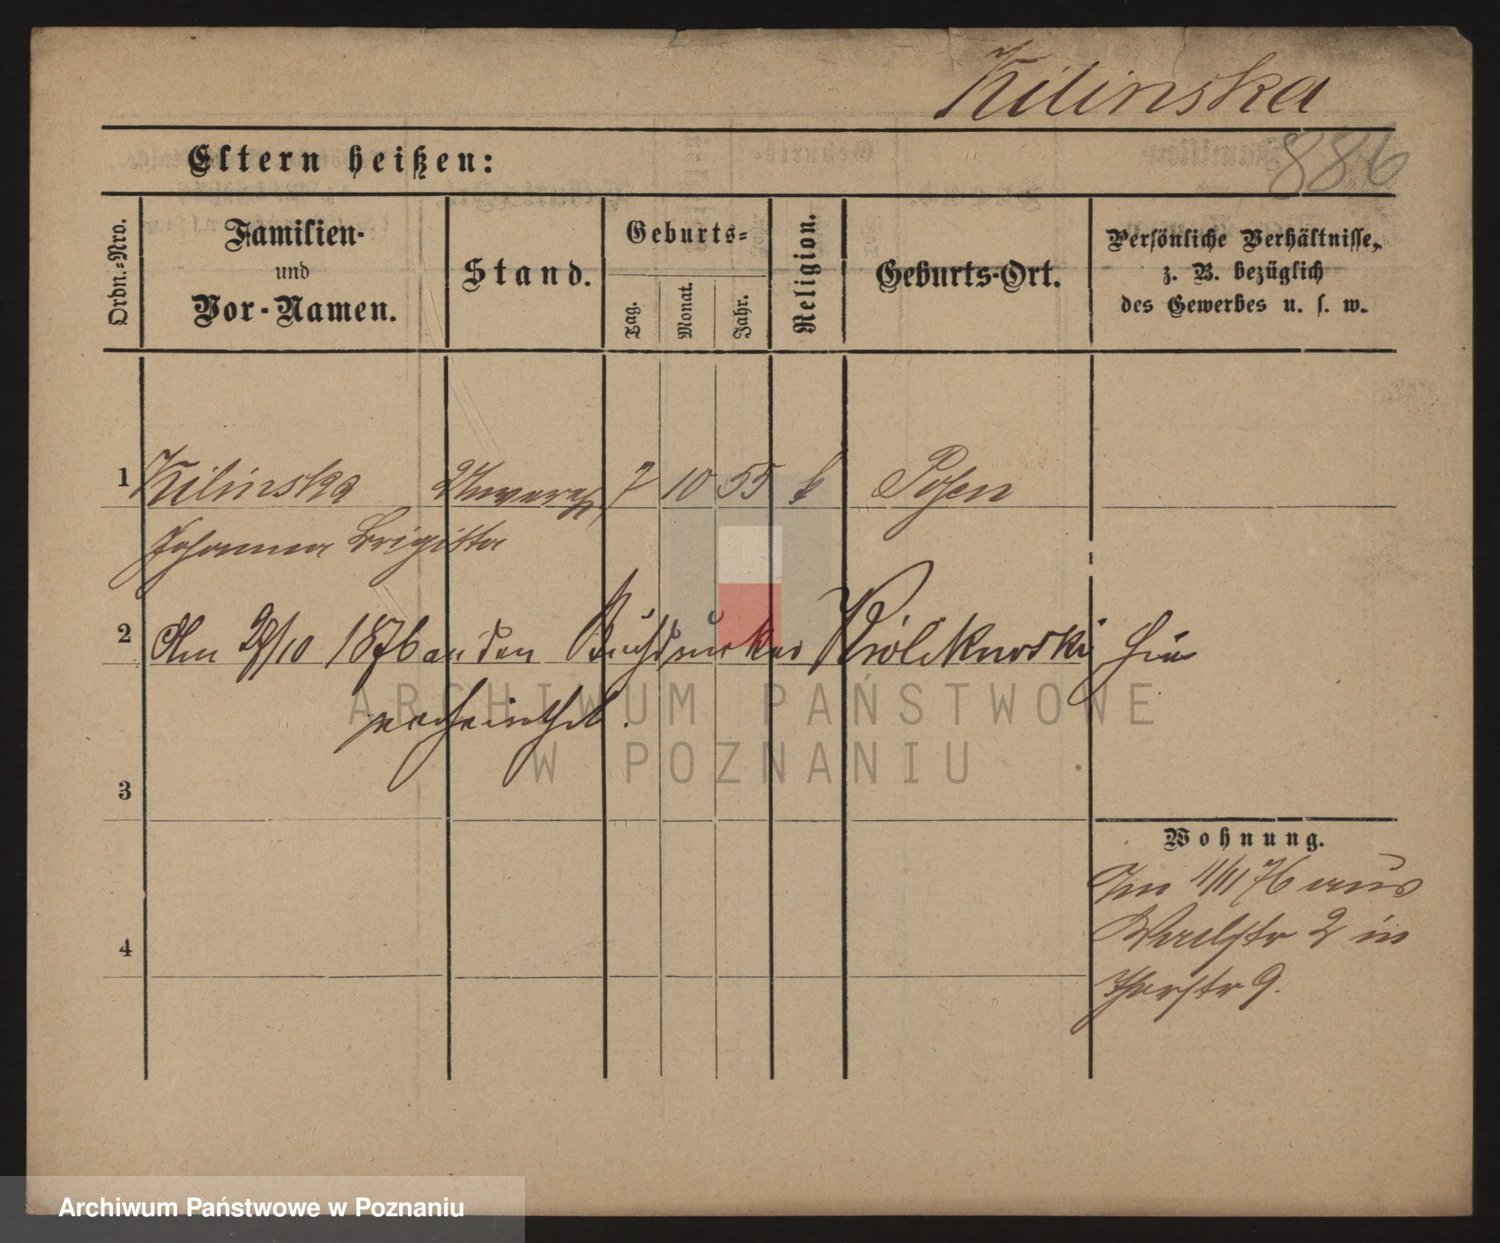 Kilinska
886
Eltern heißen:
Ordn.-Nro.
Familien-
und
Vor-Namen.
Stand.
Geburts-
Tag.
Monat.
Jahr.
Religion.
Geburts-Ort.
Persönliche Verhältnisse,
z. B. bezüglich
des Gewerbes u. s. w.
1 Kilinska 7 10 55 k Posen
Johanna Brigitta
2 Am /10 1876 an den Buchdrucker hier
verheirathet.
ARCHIWUM PAŃSTWOWE
W POZNANIU
3
Wohnung.
Im 11/11 76 aus
2 in
4
9.
Archiwum Państwowe w Poznaniu